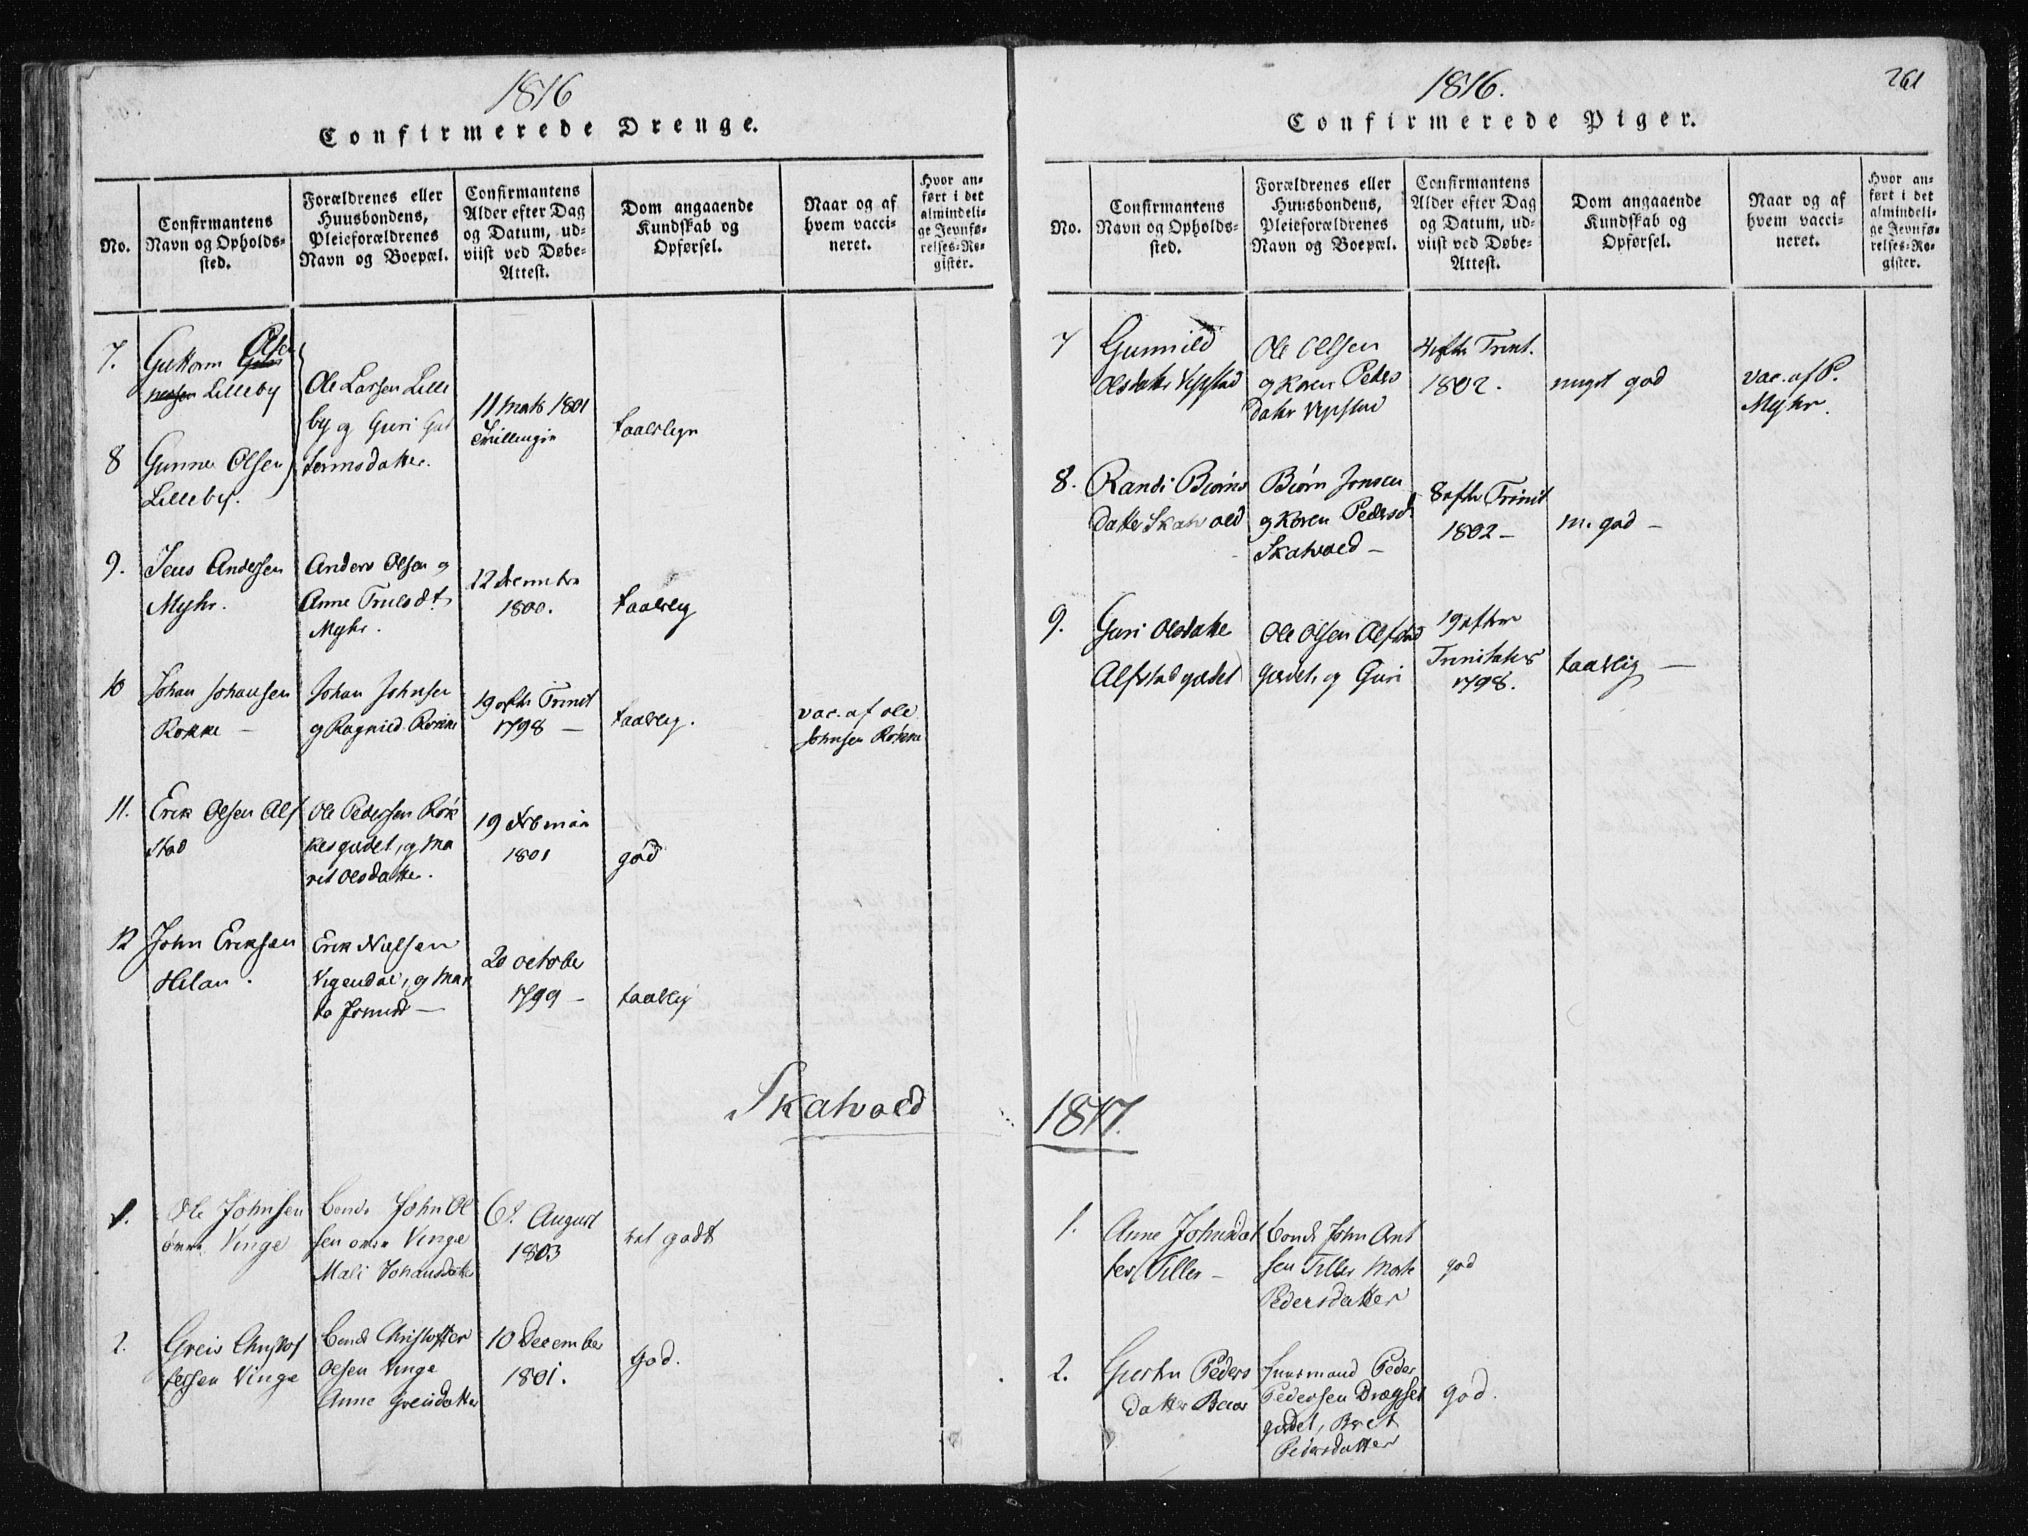 1816
Confirmerede Drenge.
No.
Confirmantens
Navn og Opholds-
sted.
Forældrenes eller
Huusbondens,
Pleieforældrenes
Navn og Boepæl.
Confirmantens
Alder efter Dag
og Datum, ud-
viist ved Døbe-
Attest.
Dom angaaende
Kundskab og
Opførsel.
Naar og af
hvem vacci-
neret.
Hvor an-
ført i det
almindeli-
ge Jevnfø-
relses-Re-
gister.
7.
Guttorm Olsen
Lilleby
Ole Larsen Lille
by og Guri Gut
tormsdatter.
11 Marts 1801
Tvillinger
taalelige
8
Gunner Olsen
Lilleby.
9.
Jens Andersen
Myhr.
Anders Olsen og
Anne Trulsdt
Myhr.
12
1800.
taalelig
10
Johan Johansen
Røkke
Johan Johnsen
og Ragnild Røkke
19 efth Trinit
1798 —
taalelig.
vac. af Ole
Johnsen Røkke
11.
Erik Olsen Alf
stad
Ole Pedersen Røk
kesgiedet, og Ma
rit Olsdatter.
19
1801
god
12
John Eriksen
Hilan.
Erik Nielsen
Vigendal, og Mar
ta
20 october
1799 —
taalelig
Skatvold
1.
Ole Johnsen
Vinge
bonde John Ol
sen Vinge
Mali Johansdatter
6t. August
1803
vel godt
2.
Greis Christof
fersen Vinge
bonde Christoffer
Olsen Vinge
Anne Greisdatter
10 December
1801.
god.
1816.
261
Confirmerede Piger.
No.
Confirmantens
Navn og Opholds-
sted.
Forældrenes eller
Huusbondens,
Pleieforældrenes
Navn og Boepæl.
Confirmantens
Alder efter Dag
og Datum, ud-
viist ved Døbe-
Attest.
Dom angaaende
Kundskab og
Opførsel.
Naar og af
hvem vacci-
neret.
Hvor an-
ført i det
almindeli-
ge Jevnfø-
relses-Re-
gister.
7
Gunnild
Olsdatter Vepstad
Ole Olsen
og Karen Peders
datter Vepstad
4 efth Trint.
1802.
meget god
vac. af P.
Myhr.
8.
Randi Biørns
datter Skatvold
Biørn Jonsen
og Karen Pedersd.
Skatvold —
8 efth Trinit
1802 —
m. god —
9.
Guri Olsdatter
Alfstadgiedet
Ole Olsen Alfstad
giedet, og Guri
19 efter
Trinitatis
1798.
taalelig —
1817.
1.
Anne Johnsdat
ter Tiller —
bonde John Ant
sen Tiller Marte
Pedersdatter
god
2.
Giertru Peders
datter
Huusmand Peder
Pedersen Drægset
giedet, Bret
Pedersdatter
god.